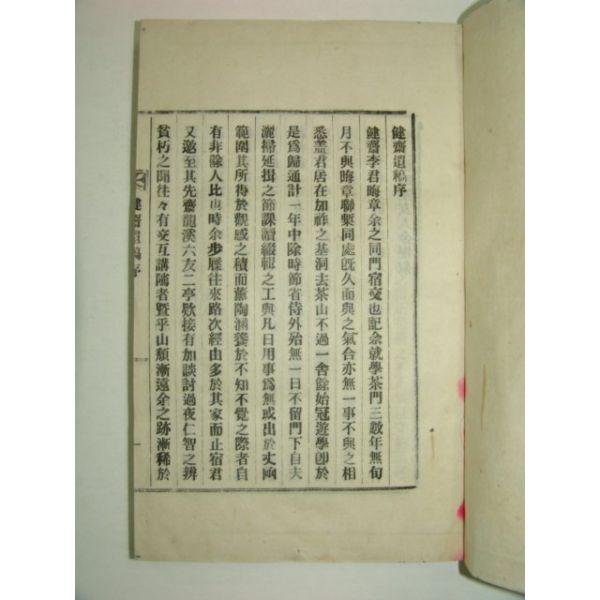 健齋遺稿序
健齋李君晦章余之同門宿交也記余就學茶門三數年無旬
月不與晦章聯槧同處旣久而與之氣合亦無一事不與之相
悉蓋君居在加祚之基洞去茶山不過一舍餘始冠遊學卽於
是爲歸通計一年中除時節省侍外殆無一日不留門下自夫
灑掃延揖之節課讀綴輯之工與凡日用事爲無或出於丈函
範圍其所得於觀感之積而薰陶涵養於不知不覺之際者自
有非餘人比也時余步屧往來路次經由多於其家而止宿君
又邀至其先齋龍溪六友二亭欵接有加談討過夜仁智之辨
貧朽之聞往々有交互講隲者曁乎山頹漸遠余之跡漸稀於
健齋遺稿序